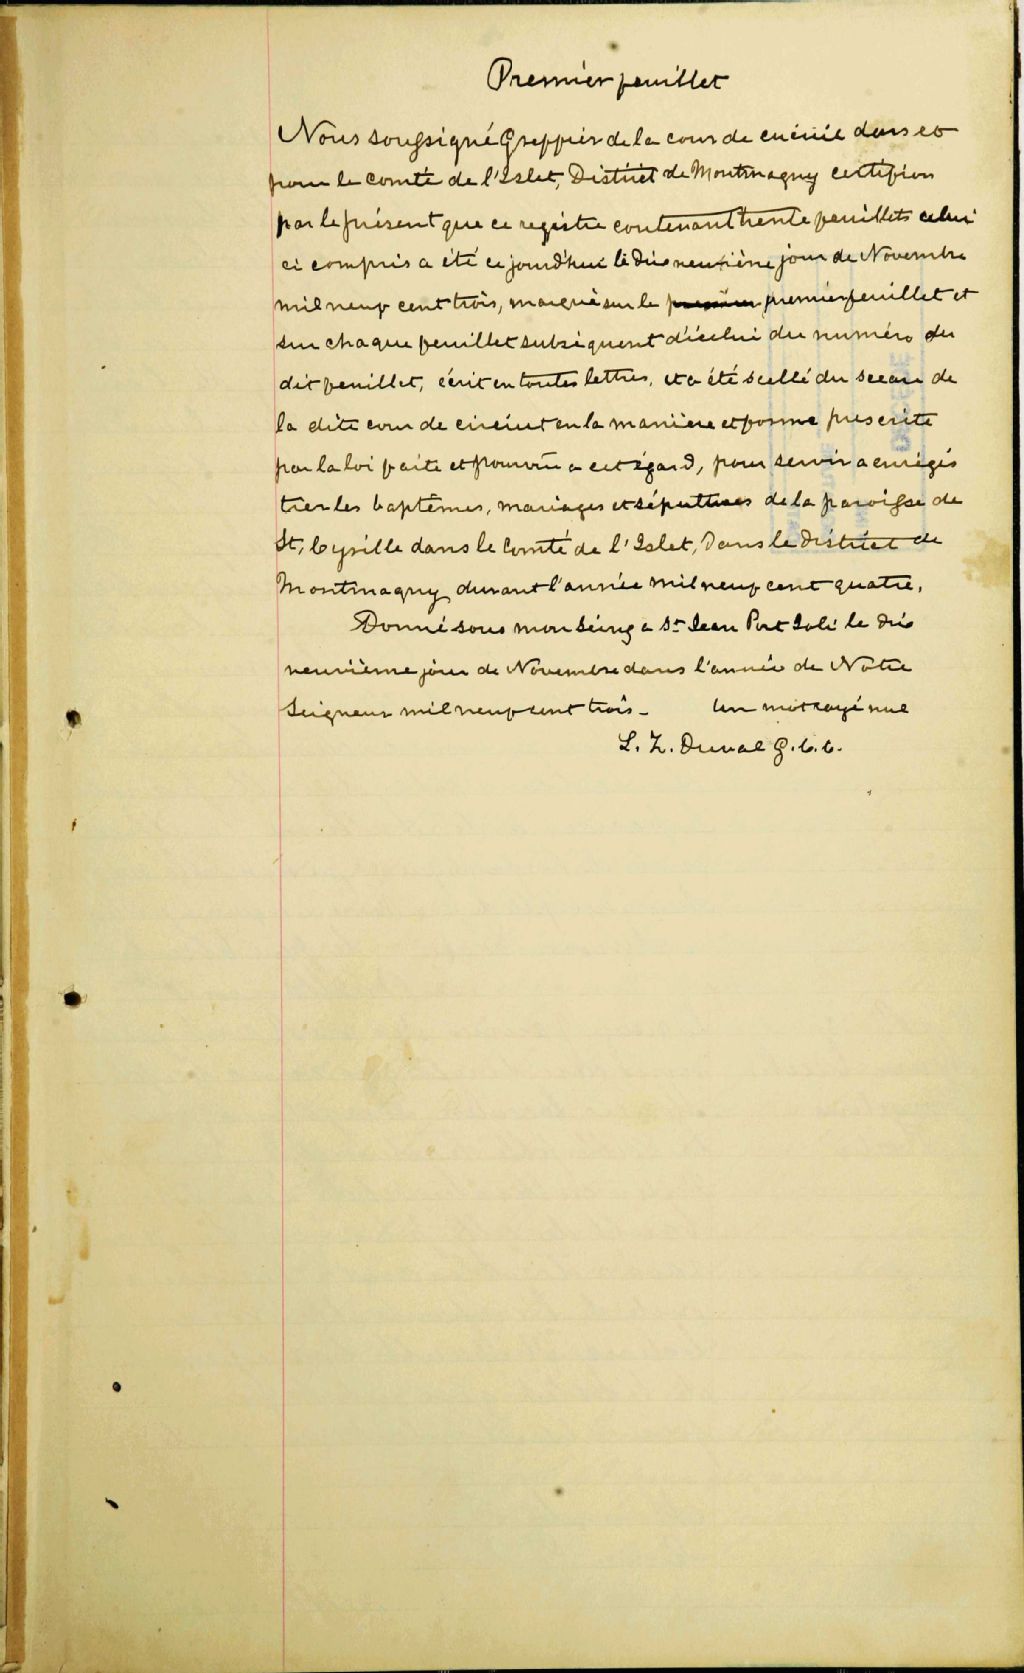 Premier feuillet
Nous soussigné Greffier de la cour de circuit dans et
pour le comté de l'Islet, District de Montmagny certifion
par le présent que ce registre contenant trente feuillets celui
ci compris a été ce jourd'hui le dix neuvième jour de Novembre
mil neuf cent trois, marqué sur le premier premier feuillet et
sur chaque feuillet subséquent d'icelui du numéro du
dit feuillet, écrit en toutes lettres, et a été scellé du sceau de
la dite cour de circuit en la manière et forme prescrite
par la loi faite et pourvu a cet égard, pour servir a enrégis
trer les baptêmes, mariages et sépultures de la paroisse de
St, Cyrille dans le Comté de l'Islet, Dans le District de
Montmagny durant l'année mil neuf cent quatre,
Donné sous mon seing a St Jean Port Joli le dix
neuvième jour de Novembre dans l'année de Notre
Seigneur mil neuf cent trois - Un mot rayé nul
L. Z. Duval G. C. C.